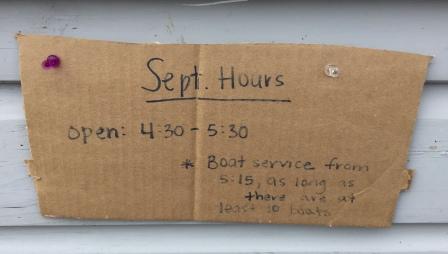 Sept. Hours
open: 4:30 - 5:30
* Boat service from
5:15, as long as
there are at
least 10 boats